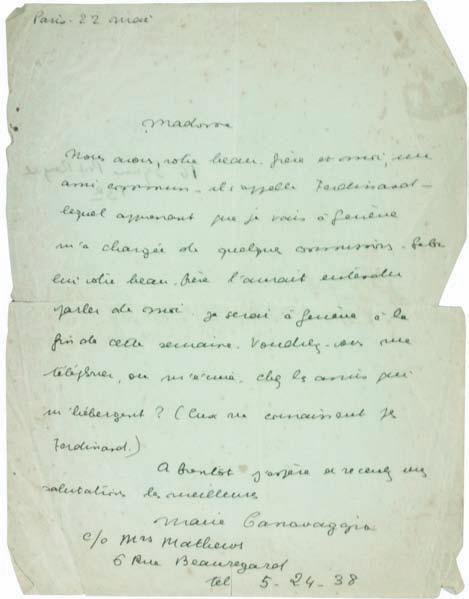 Paris - 22 mai
Madame
Nous avons, votre beau-frère et moi, un
ami commun - il s'appelle Ferdinand -
lequel apprenant que je vais à Genève
m'a chargée de quelque commission. Selon
lui votre beau-frère l'aurait entendu
parler de moi. Je serai à Genève à la
fin de cette semaine. Voudriez-vous me
téléphoner, ou m'écrire, chez les amis qui
m'hébergent ? (Eux ne connaissent pas
Ferdinand.)
A bientôt j'espère et recevez mes
salutations les meilleures
Marie Canavaggia
c/o Mrs Mathews
6 Rue Beauregard
tel 5-24-38